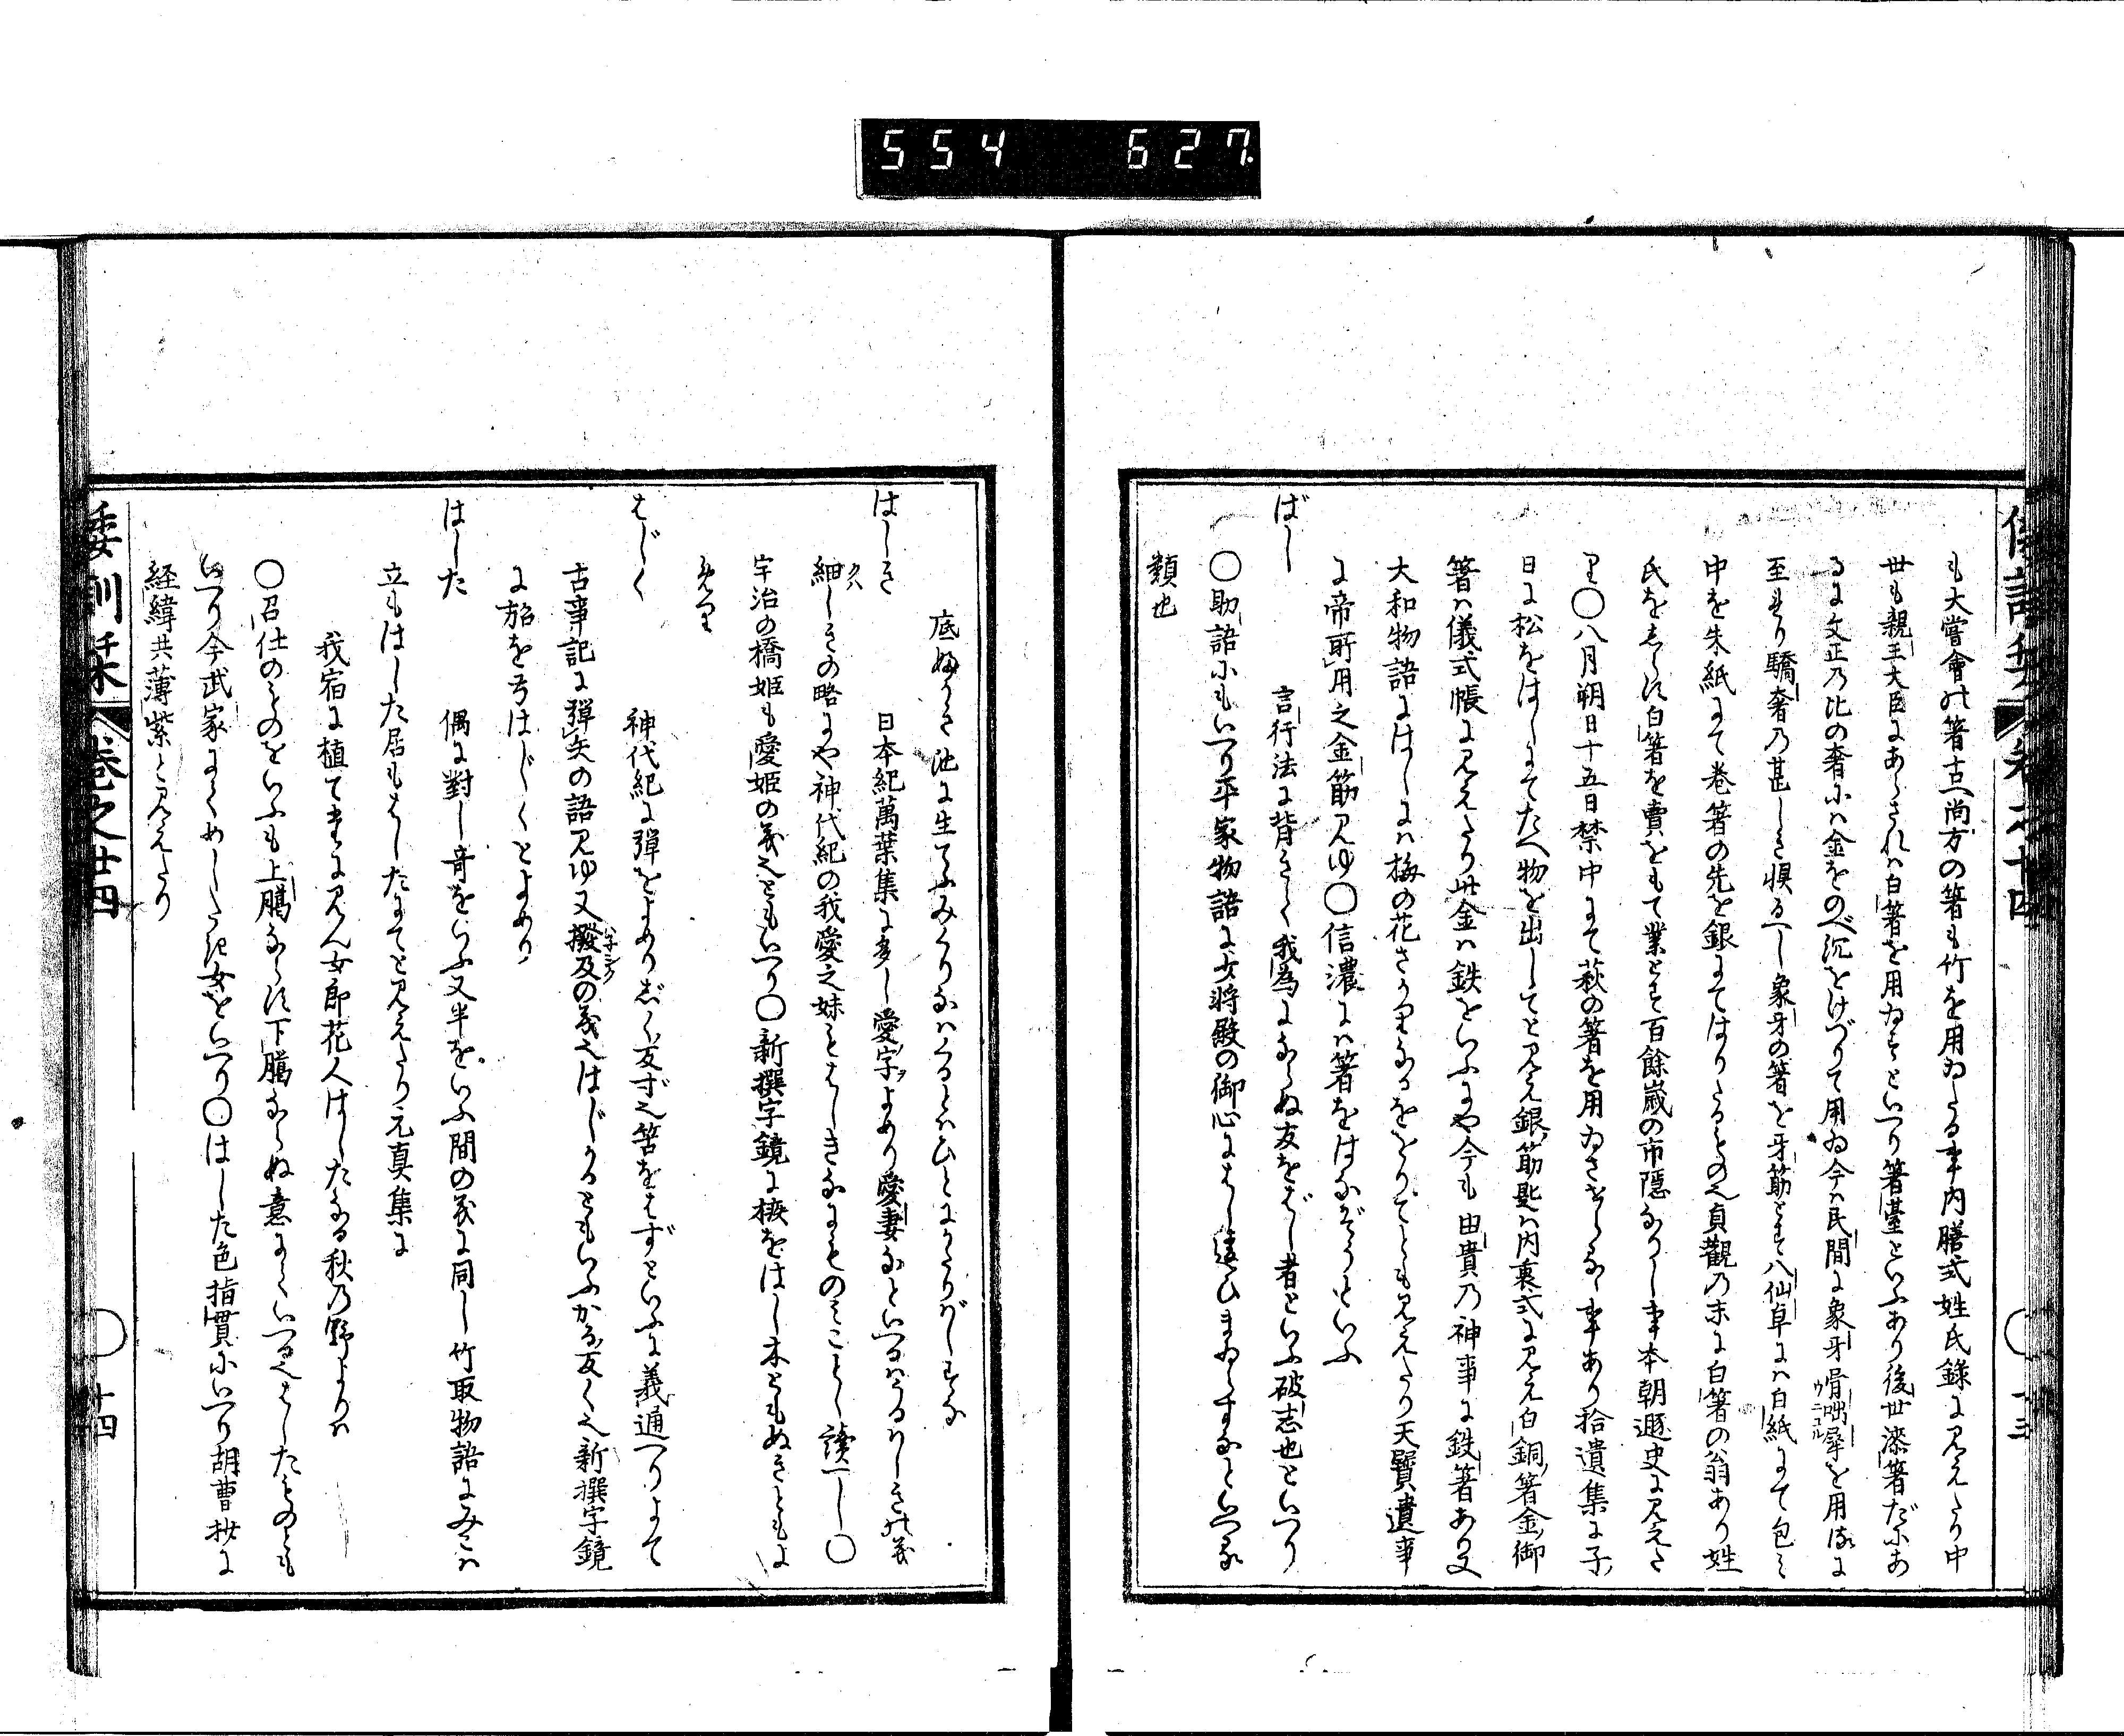 554 627
も大嘗會の箸古へ尚方の箸も竹を用ゐたる事内膳式姓氏錄に見えたり中
世も親王大臣にあらされハ白箸を用ゐすといへり箸臺といふあり後世漆箸だにあ
るに文正乃比の奢にハ金をのべ沉をけづりて用ゐ今ハ民間に象牙骨咄犀を用るに
ウニコル
至れり驕奢乃甚しき惧るへし象牙の箸を牙筯とす八仙卓にハ白紙にて包ミ
中を朱紙にて巻箸の先を銀にてはりたるもの也貞觀の末に白箸の翁あり姓
氏をしらす白箸を賣をもて業とす百餘歳の市隱なりし事本朝遯史に見えた
り○八月朔日十五日禁中にて萩の箸を用ゐさせらる事あり拾遺集に子
日に松をはしにてたへ物を出してと見え銀筯匙ハ内裏式に見え白銅箸金御
箸ハ儀式帳に見えたり此金ハ鉄をいふにや今も由貴乃神事に鉄箸あり又
大和物語にはしにハ梅の花さかりなるをとりてとも見えたり天寶遺事
に帝所用之金筯見ゆ○信濃にハ箸をはなぞうといふ
ばし 言行法に背きく我爲にならぬ友をばし者といふ破志也といへり
○助語にもいへり平家物語に少将殿の御心にはし違ひまゐらすなといへる
類也
底ふかき池に生てふみくりなハくるとハひとにかたりばしすな
はしき 日本紀萬葉集に多し愛ノ字ヲよめり愛妻などいへるハうるハしきの義
細しきの略にや神代紀の我愛之妹もはしきなにものミことゝ讀へし○
クハ
宇治の橋姫も愛姫の義也ともいへり○新撰字鏡に椴をはし木ともぬきともよ
めり
はじく 神代紀に彈をよめりぢく反ず也筈をはずといふに義通へりよて
古事記に彈矢の語見ゆ又撥及の義也はじかるともいふかる反く也新撰字鏡
ハチシク
に弨を弓はじくとよめり
はした 偶に對し奇をいふ又半をいふ間の義に同し竹取物語にみこハ
立もはした居もはしたにてと見えたり元真集に
我宿に植てまたに見ん女郎花人はしたなる秋乃野よりハ
○召仕のものをいふも上﨟ならす下﨟ならぬ意にていへる也はしたものとも
いへり今武家にてくめしたる女をいへり○はした色指貫にいへり胡曹抄に
経緯共薄紫と見えたり
倭訓栞 巻之廿四
十四